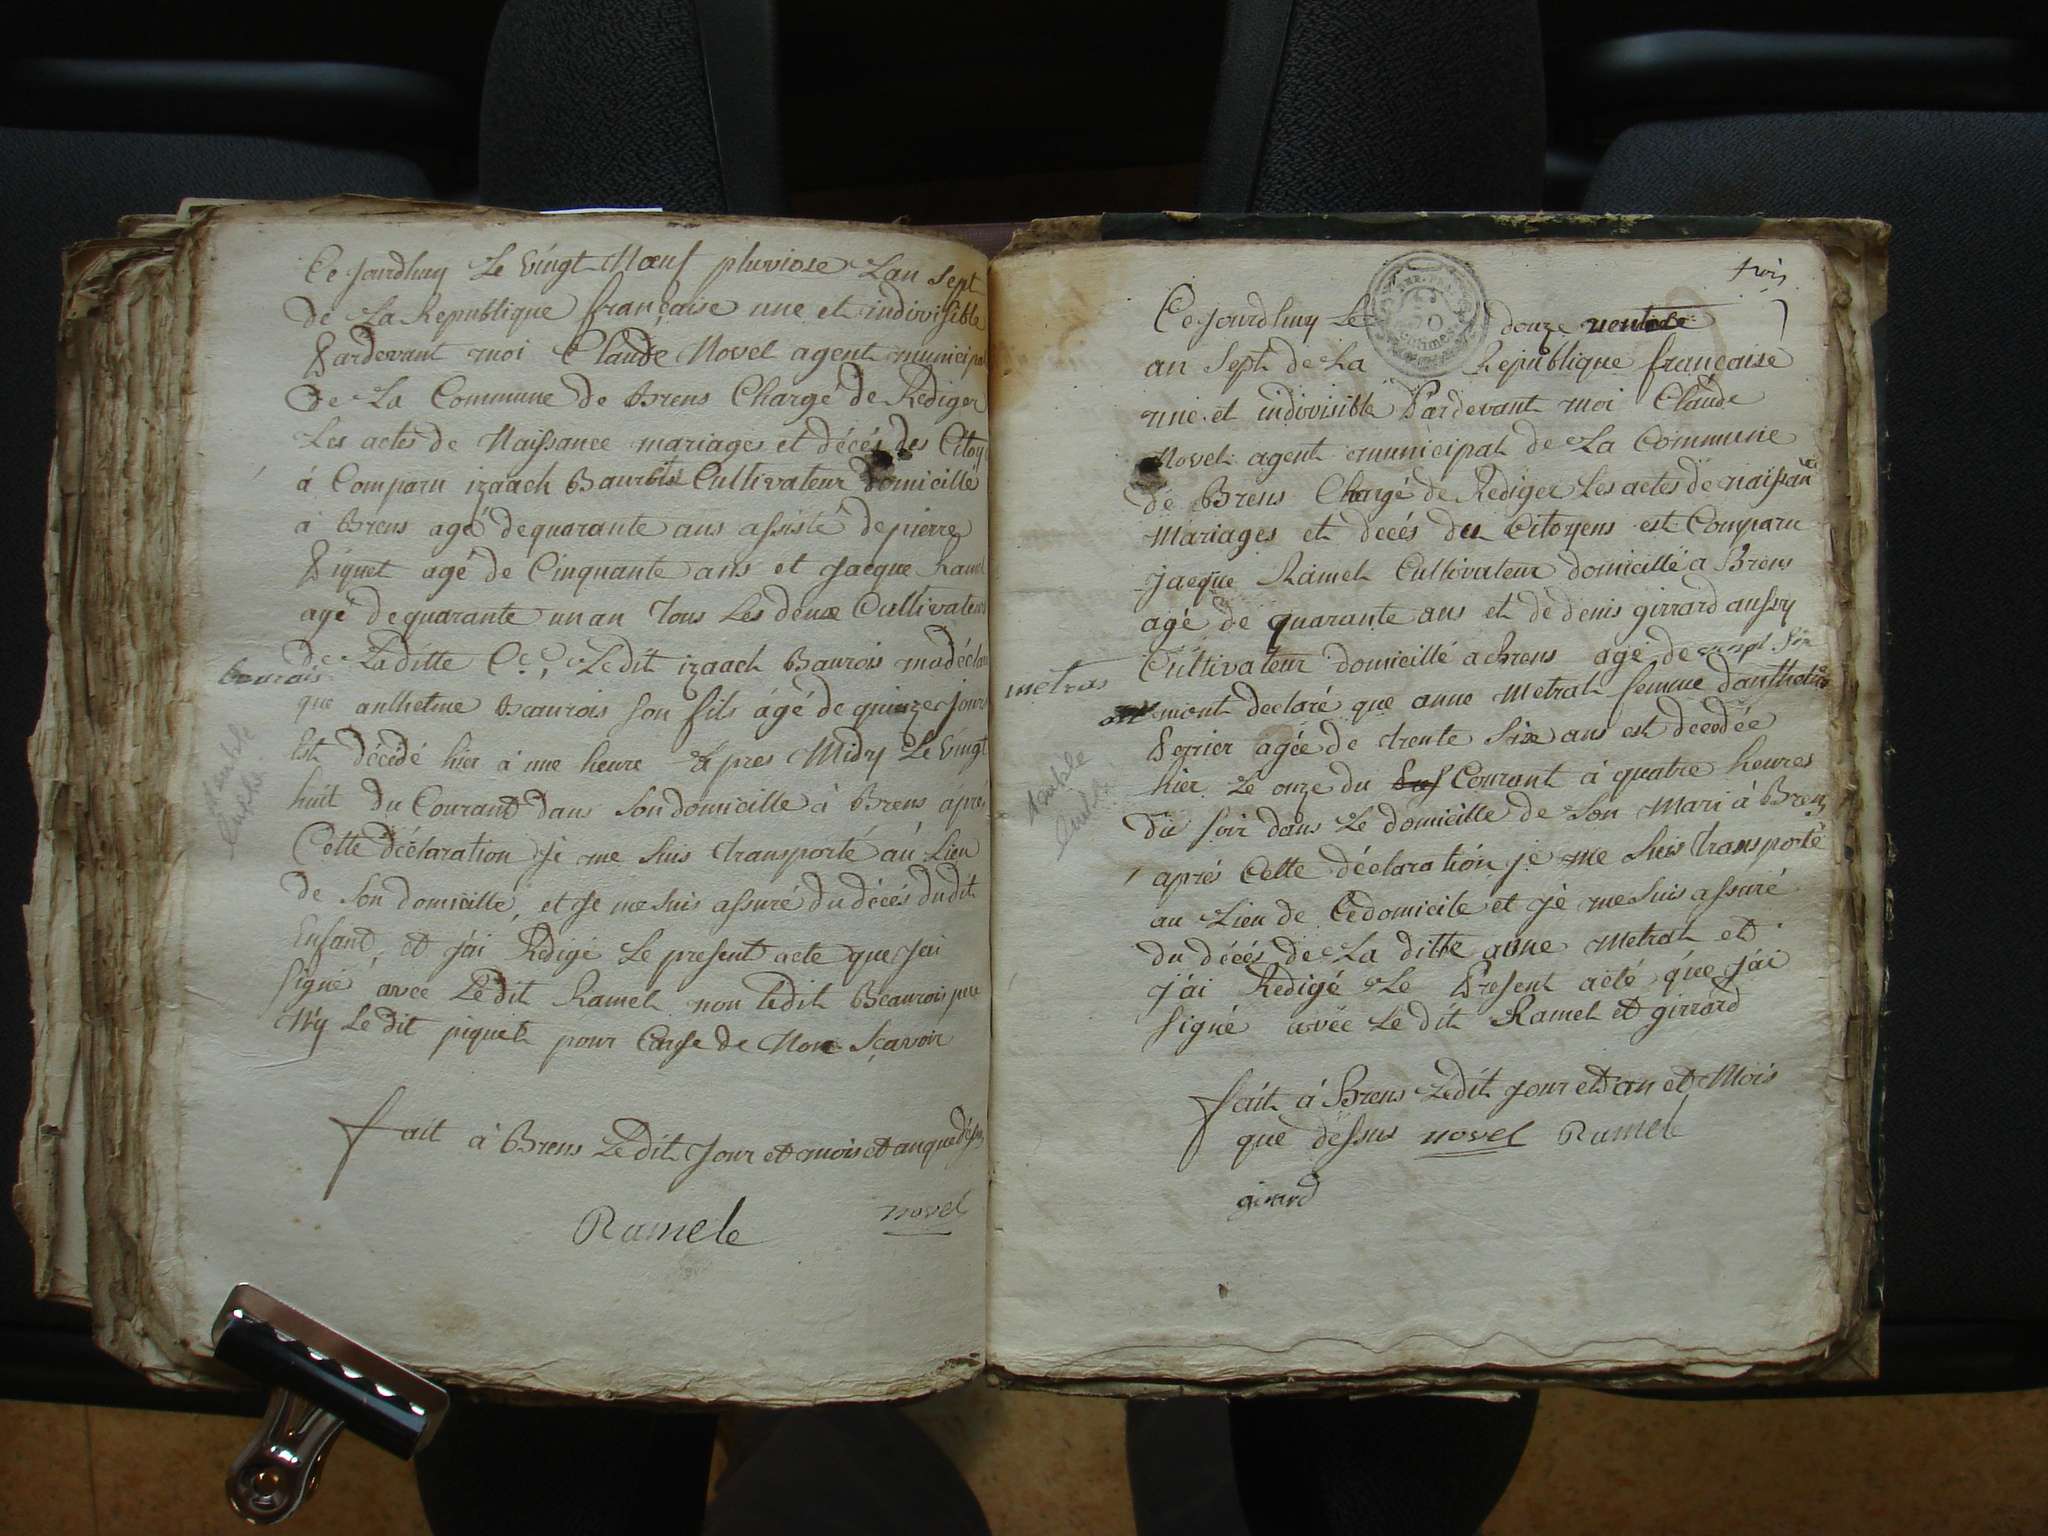 Ce jourdhuy Le Vingt Noeuf pluviose Lan Sept
de La Republique française une et indivisible
Pardevant moi Claude Novel agent municipal
de La Commune de Brens Chargé de Rediger
Les actes de Naissance mariages et décés des Citoy
á Comparu izaack Baurois Cultivateur domicillé
á Brens agé de quarante ans assisté de pierre
Piquet agé de Cinquante ans et Jacque Ramel
agé de quarante un an Tous Les deux Cultivateurs
de Laditte Cne, Ledit izaack Baurois madéclaré
baurois
que anthelme Beaurois Son fils ágé de quinze jours
Est décédé hier á une heure Apres Midy Le Vingt
huit du Courant dans Son domicille á Brens áprés
Cette déclaration je me Suis transporté au Lieu
de Son domicille, et Je me suis assuré du décés dudit
Enfant, et J'ai Rédigé Le present acte que J'ai
Signé avec Ledit Ramel non Ledit Beaurois pere
N'y Le dit piquet pour Cause de Non Sçavoir
fait á Brens Ledit Jour et mois et an que dessus
Ramele novel
trois
Ce jourdhuy Le douze ventose
an Sept de La Republique française
une et indivisible Pardevant moi Claude
Novel agent municipal de La Commune
de Brens Chargé de Rediger Les actes de naissance
Mariages et decés des Citoyens est Comparu
Jacque Ramel Cultivateur domicillé a Brens
agé de quarante ans et de denis girrard aussy
Cultivateur domicillé a brens agé de vingt Six
metras
mont declaré que anne Metral femme d'anthelme
Perrier agée de trente Six ans est decedée
hier Le onze du Courant á quatre heures
du Soir dans Le domicille de Son Mari á Brens
aprés Cette déclaration je me Suis transporté
au Lieu de Ce domicile et Je me Suis assuré
du décés de La ditte anne Metral et
J'ai Redigé Le Present acte que J'ai
Signé avec Le dit Ramel et girrard
fait á Brens Ledit Jour et an et Mois
que dessus novel Ramele
girard